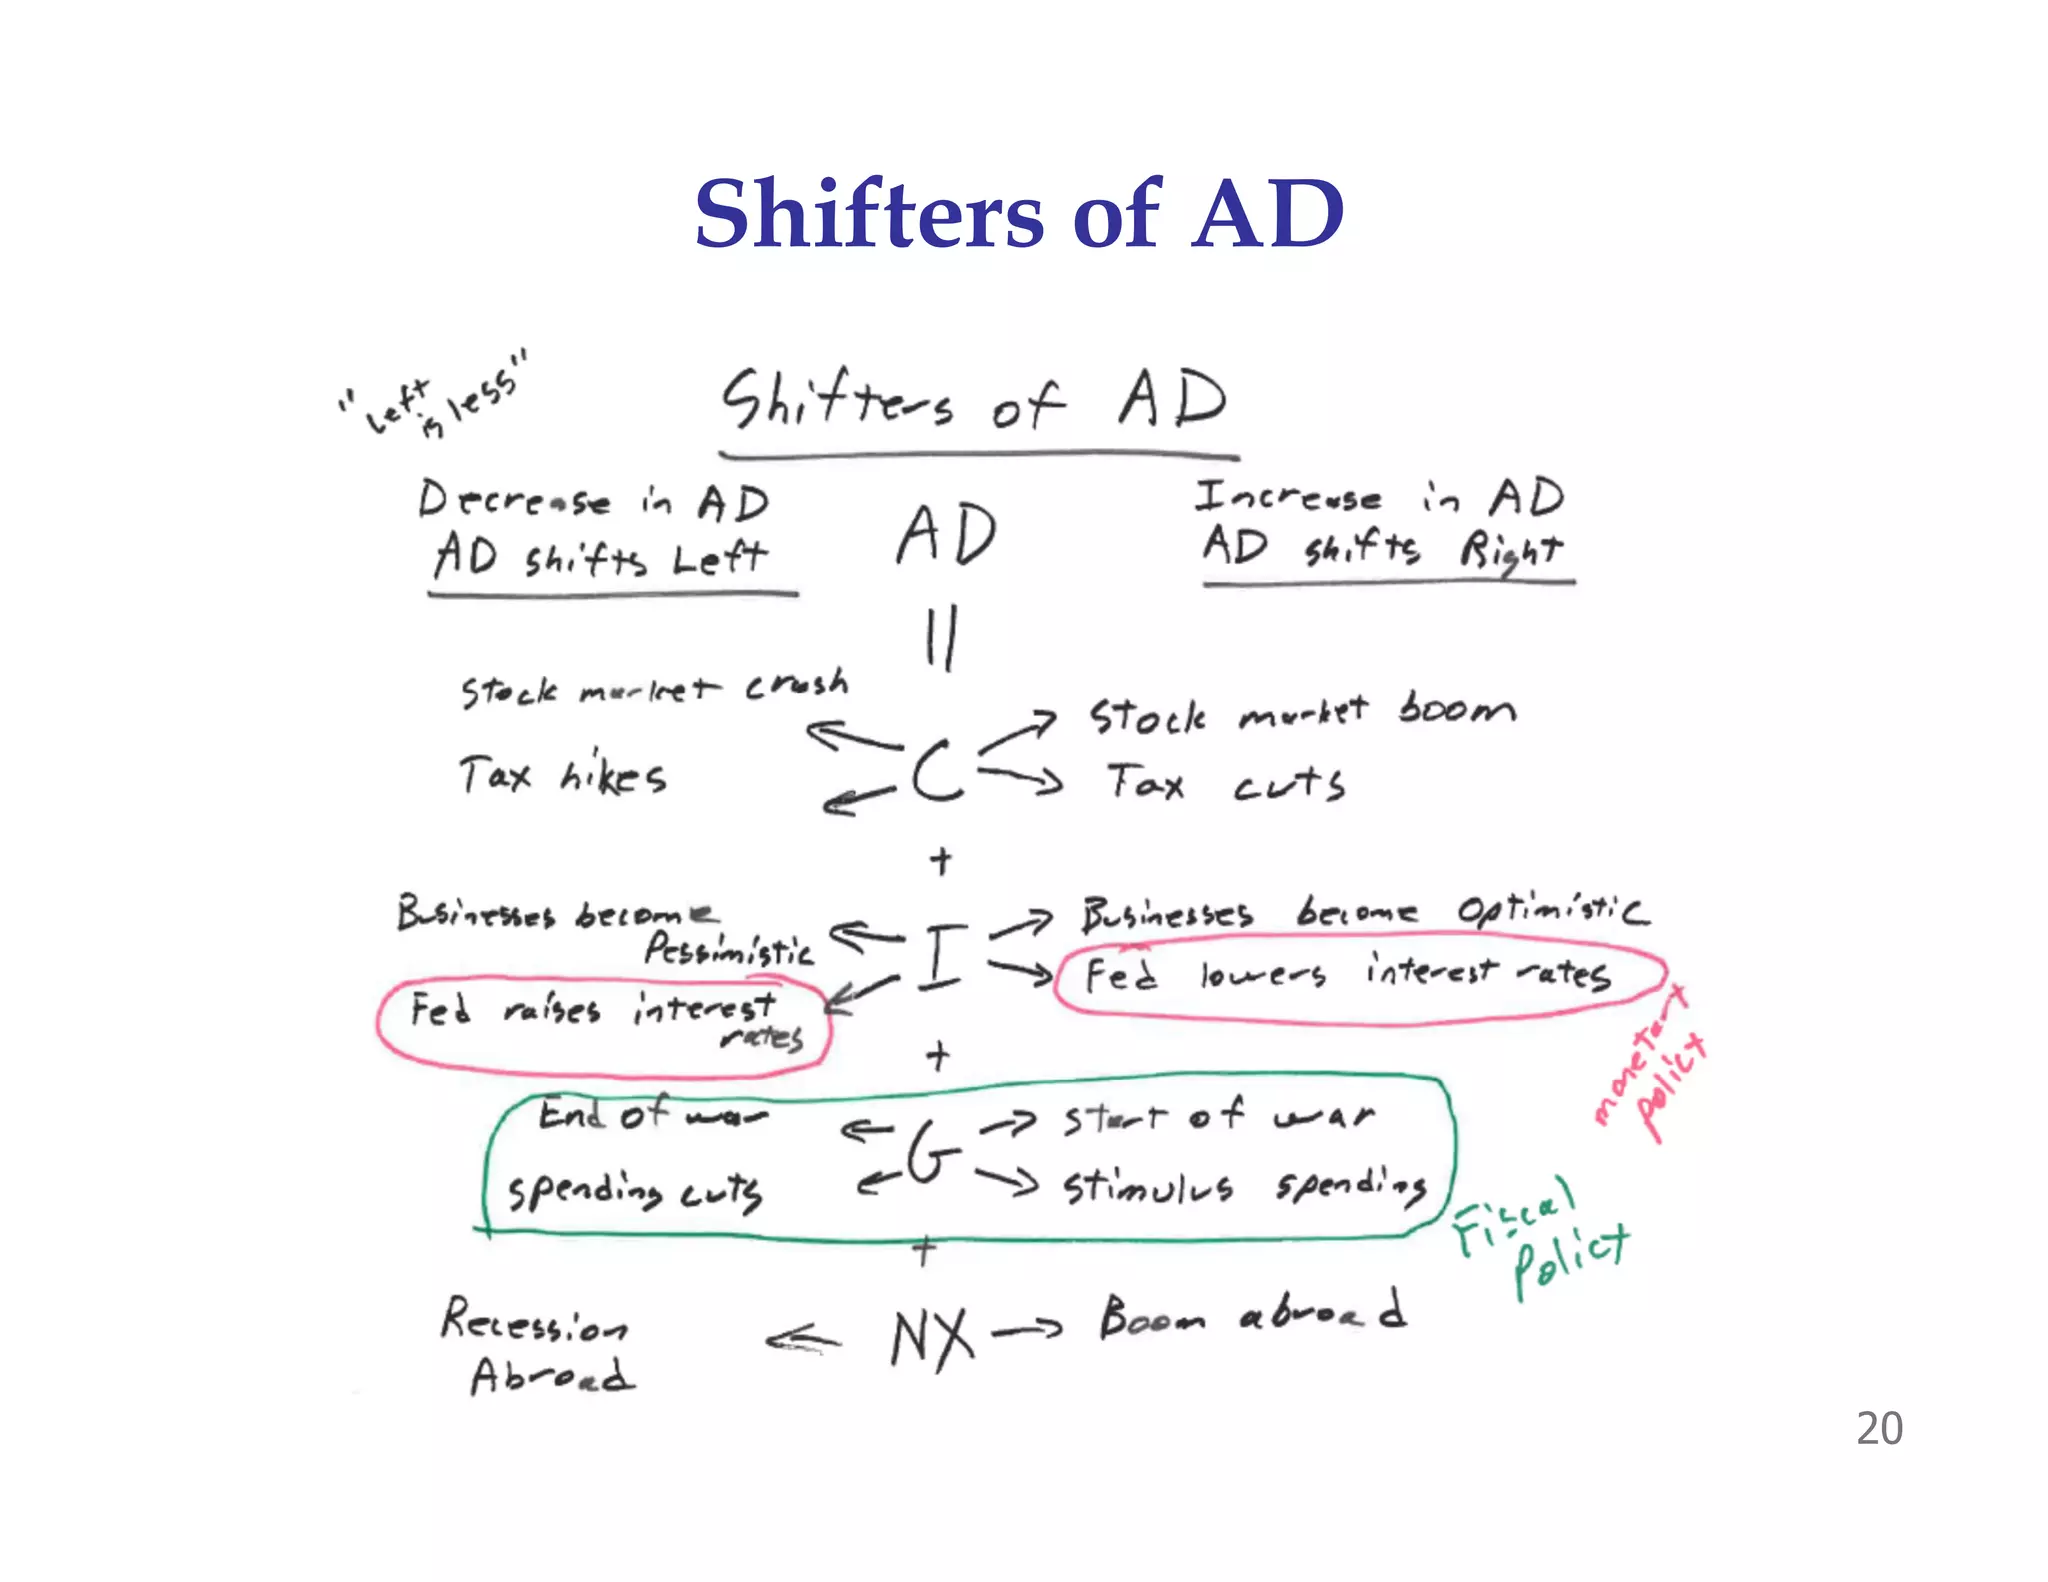 Shifters of AD
"Left is less"
Shifters of AD
Decrease in AD
AD shifts Left
AD
Increase in AD
AD shifts Right
||
Stock market crash
Stock market boom
Tax hikes
C
Tax cuts
+
Businesses become
Pessimistic
I
Businesses become optimistic
Fed raises interest
rates
Fed lowers interest rates
monetary
policy
+
End of war
G
start of war
spending cuts
stimulus spending
Fiscal
Policy
+
Recession
Abroad
NX
Boom abroad
20